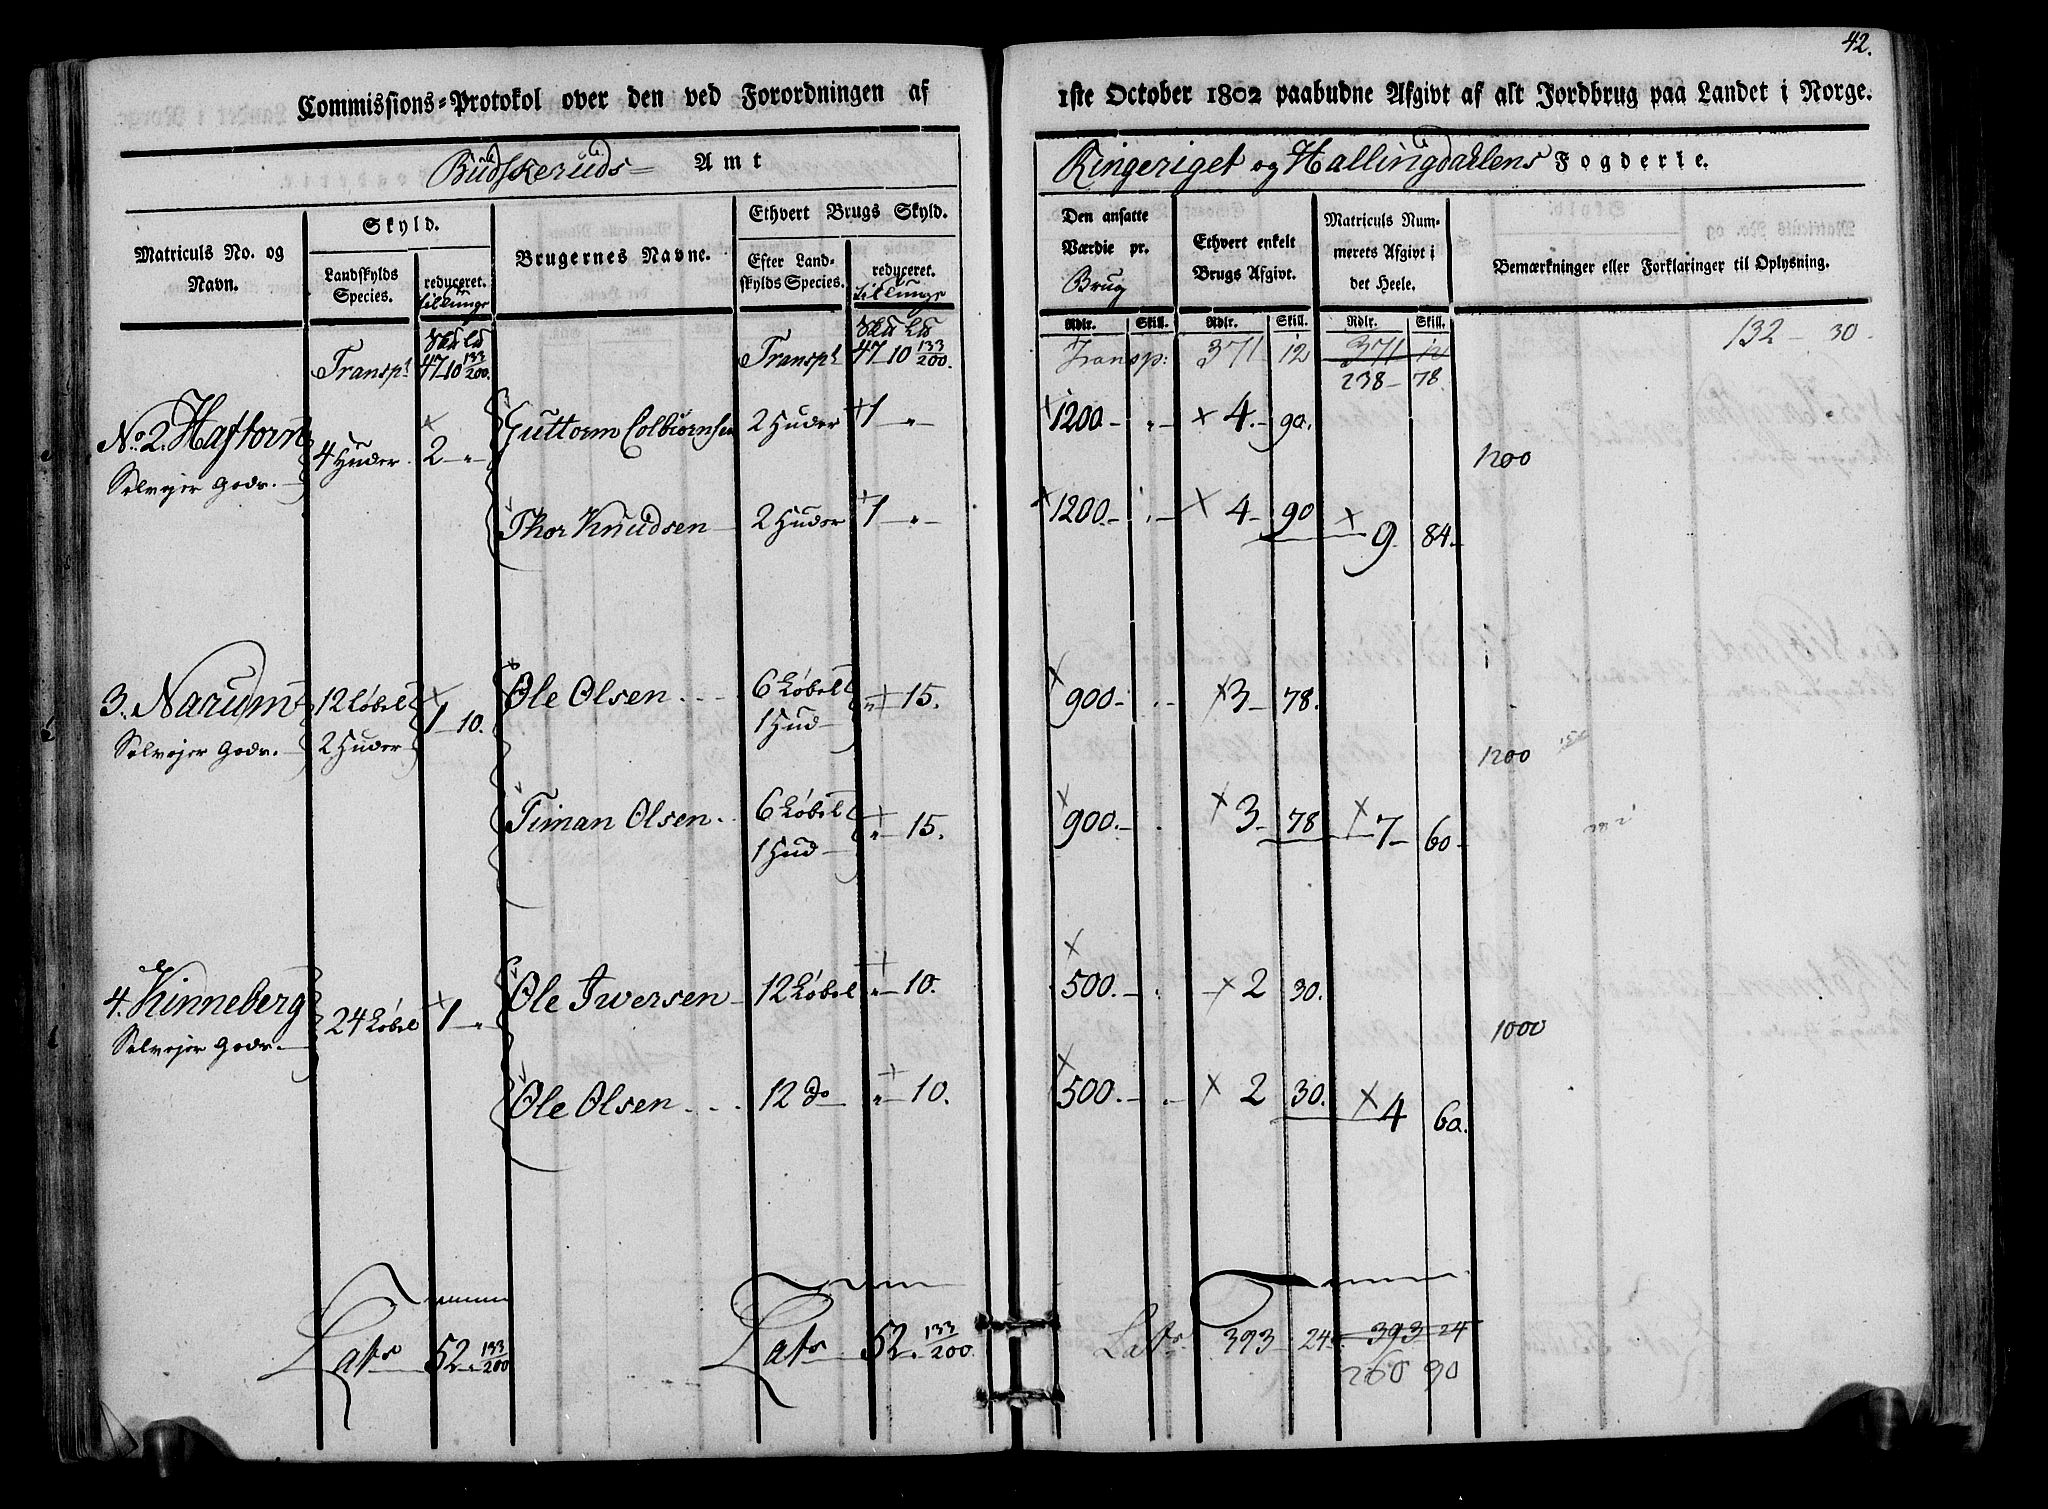 42.
Commissions=Protokol over den ved Forordningen af 1ste October 1802 paabudne Afgivt af alt Jordbrug paa Landet i Norge.
Budskeruds= Amt
Ringeriget og Hallingdahlens Fogderie.
Matriculs No. og Navn.
Skyld.
Landskylds Species.
reduceret. tillunge
Brugernes Navne.
Ethvert Brugs Skyld.
Efter Landskylds Species.
reduceret. tillunge
Den ansatte Værdie pr. Brug
Ethvert enkelt Brugs Afgivt.
Matriculs Nummerets Afgivt i det Heele.
Bemærkninger eller Forklaringer til Oplysning.
Rdlr. Skill. Rdlr. Skill. Rdlr. Skill.
Transpt 47 10 133/200. Transpt 47 10 133/200. Transp: 371 12 371 12 132 - 30.
238 - 78.
No. 2. Haftorn 4 Huder. 2 - „ Guttorm Colbiørnsen 2 Huder 1 - „ - 1200. - „ - 4. - 90.
Selvejer Gods. 1200
Thor Knudsen 2 Huder 1 - „ - 1200. - „ - 4 - 90 9. 84. -
3. Narum 12 Løbel 1 - 10. Ole Olsen 6 Løbel „ - 15. 900. - 3 - 78.
Selvejer Gods. 2 Huder 1 Hud 1200
Timan Olsen 6 Løbel „ - 15. 900. - 3 - 78 7 - 60 -
1 Hud
4. Kinneberg 24 Løbel 1 - „ Ole Iwersen 12 Løbel „ - 10. 500. - 2 30.
Selvejer Gods. 1000
Ole Olsen 12 do „ - 10. 500. - 2 30. 4 60.
Lats 52. 133/200 Lats 52. 133/200 Lats 393 - 24. 393 24
260 90